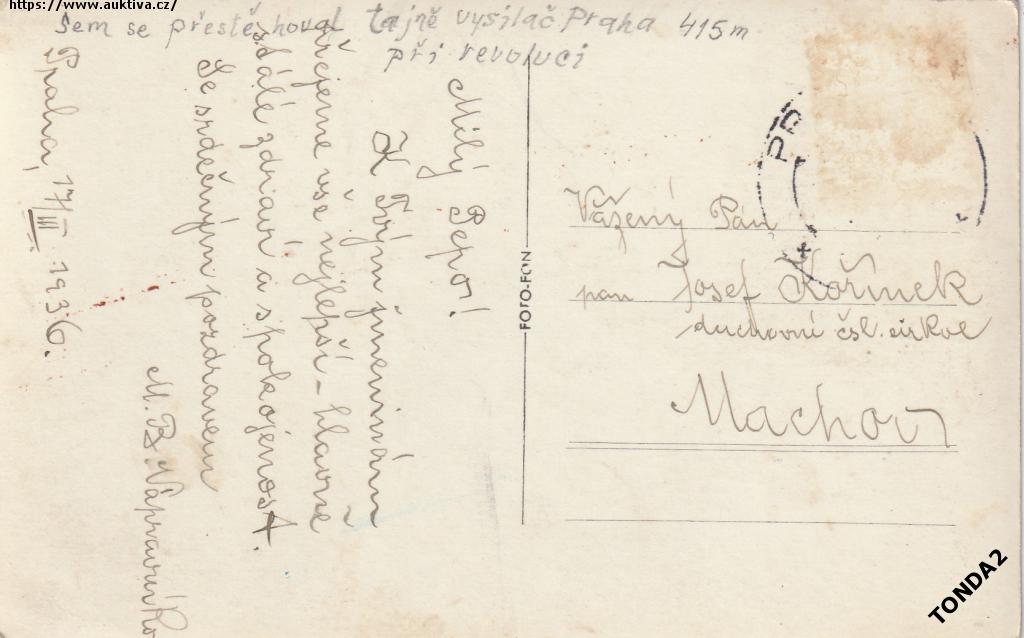 https://www.auktiva.cz/
Sem se přestěhoval tajně vysílač Praha 415m
při revoluci
Praha, 17/III. 1936.
Milý Pepo!
K Tvým jmeninám
přejeme vše nejlepší - hlavně
stálé zdraví a spokojenost.
Se srdečným pozdravem
M. B. Nápravník
FOTO-FON
PR
Vážený Pán
pan Josef Kořínek
duchovní čsl. církve
Machov
TONDA2